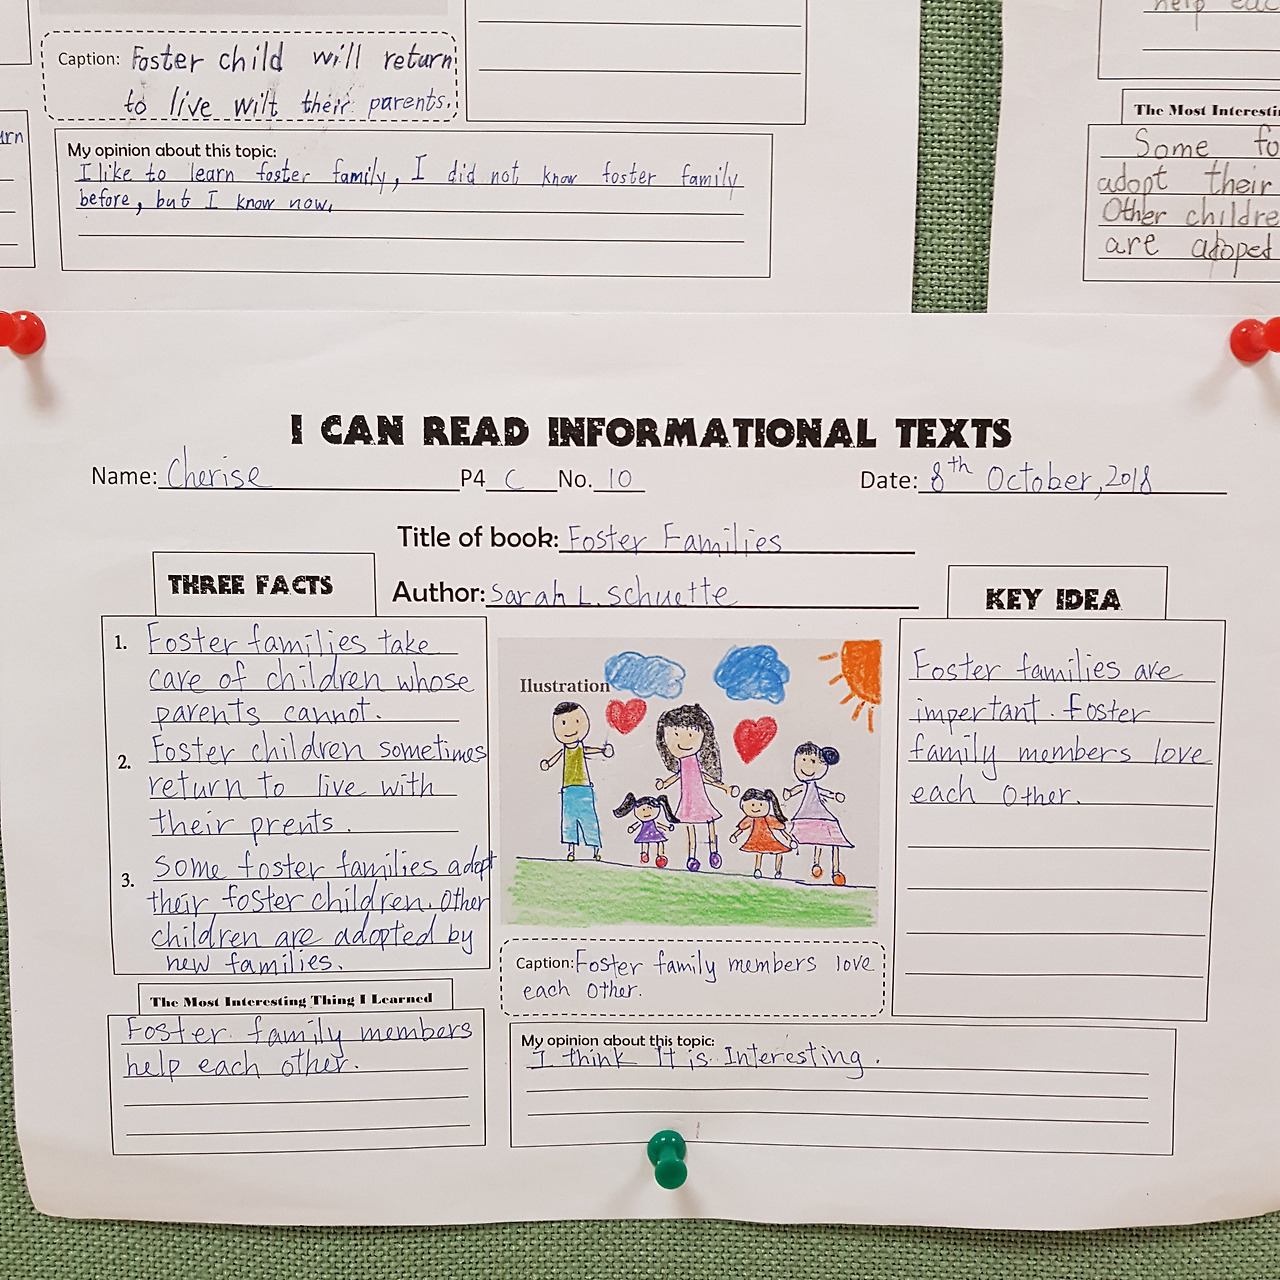 Caption: Foster child will return
to live wilt their parents.
My opinion about this topic:
I like to learn foster family, I did not know foster family
before, but I know now.
help eac
The Most Interesti
Some fo
adopt their
Other childre
are adoped
urn
I CAN READ INFORMATIONAL TEXTS
Name: Cherise P4 C No. 10 Date: 8th October, 2018
Title of book: Foster Families
Author: Sarah L. Schuette
THREE FACTS
1. Foster families take
care of children whose
parents cannot.
2. Foster children sometimes
return to live with
their prents.
3. Some foster families adopt
their foster children. Other
children are adopted by
new families.
The Most Interesting Thing I Learned
Foster family members
help each other.
Ilustration
Caption: Foster family members love
each other.
My opinion about this topic:
I think It is Interesting.
KEY IDEA
Foster families are
important. Foster
family members love
each other.